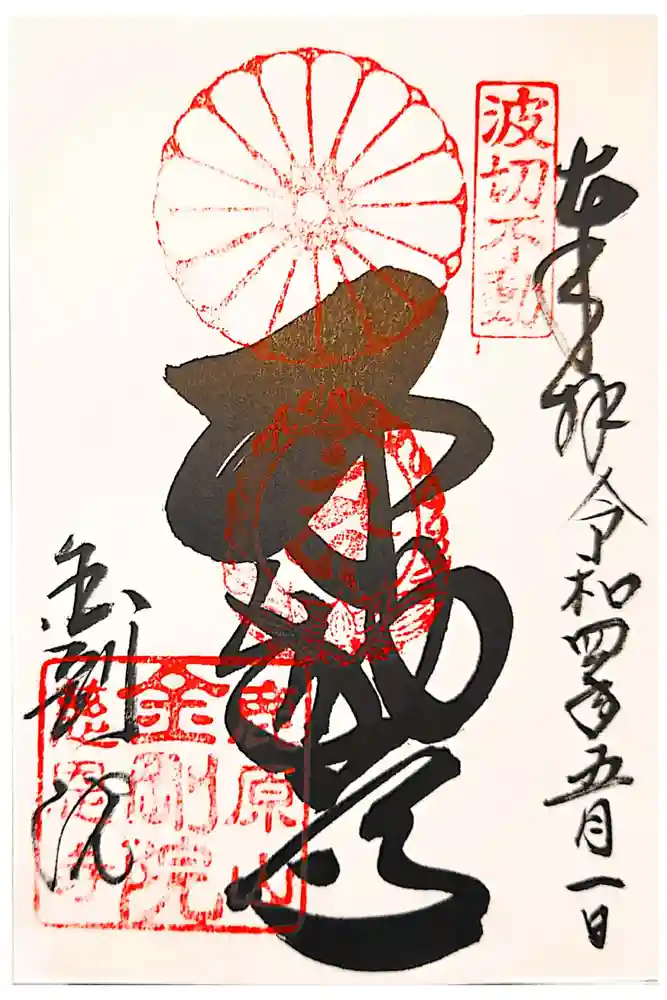 奉拝 令和四年五月一日
波切不動
金剛院
鹿原山
金剛院
慈恩寺